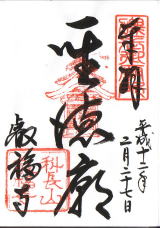 奉拝
平成十二年
二月二十七日
聖徳廟
叡福寺
科長山